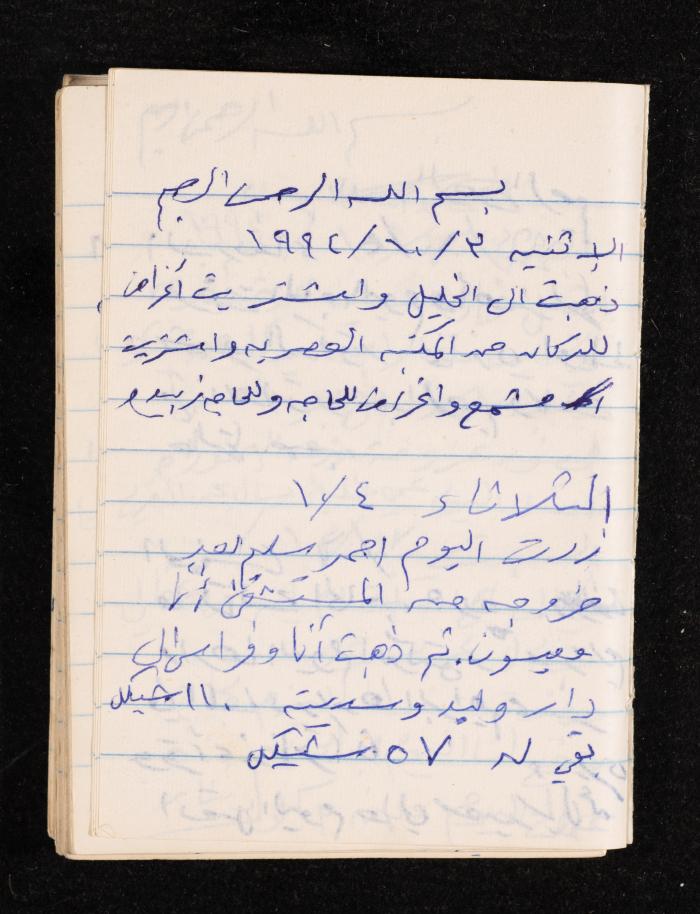 بسم الله الرحمن الرحيم
الاثنين ٣/١٠/١٩٩٤
ذهبت الى الخليل واشتريت أغراض
للدكان من المكتبه العصريه واشتريت
مشمع واغراض للحاجه وللحاج زبيدي
الثلاثاء ٤/١٠
زرت اليوم احمد سليم بعد
خروجه من المستشفى أنا
وميسون. ثم ذهبت أنا وفراس الى
دار وليد وسديته ١١٠ شيكل
بقي له ٥٧ شيكل